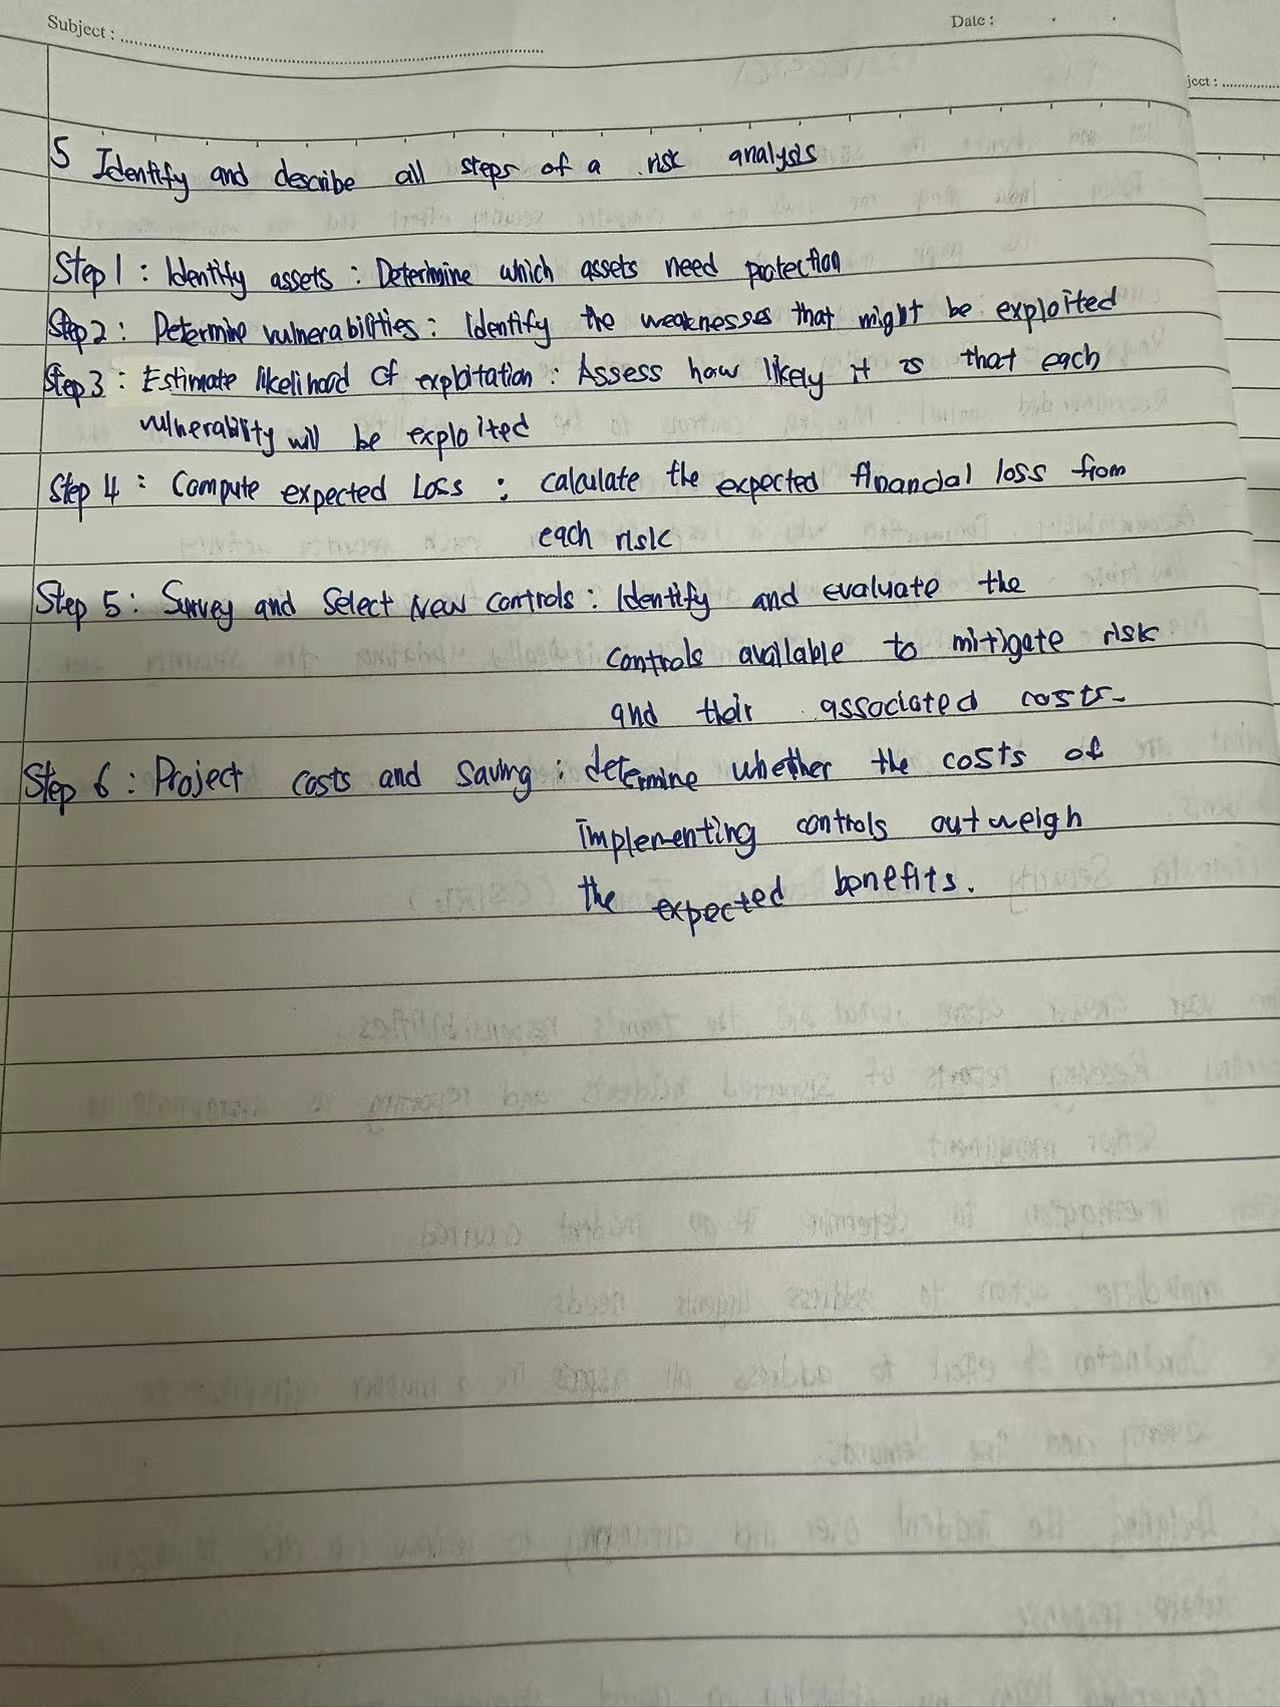 Subject :
Date :
ject :
5 Identify and describe all steps of a risk analysis
Step 1 : Identify assets : Determine which assets need protection
Step 2 : Determine vulnerabilities : Identify the weaknesses that might be exploited
Step 3 : Estimate likelihood of exploitation : Assess how likely it is that each
vulnerability will be exploited
Step 4 : Compute expected Loss : calculate the expected financial loss from
each risk
Step 5 : Survey and Select New controls : Identify and evaluate the
controls available to mitigate risk
and their associated costs.
Step 6 : Project costs and saving : determine whether the costs of
implementing controls outweigh
the expected benefits.